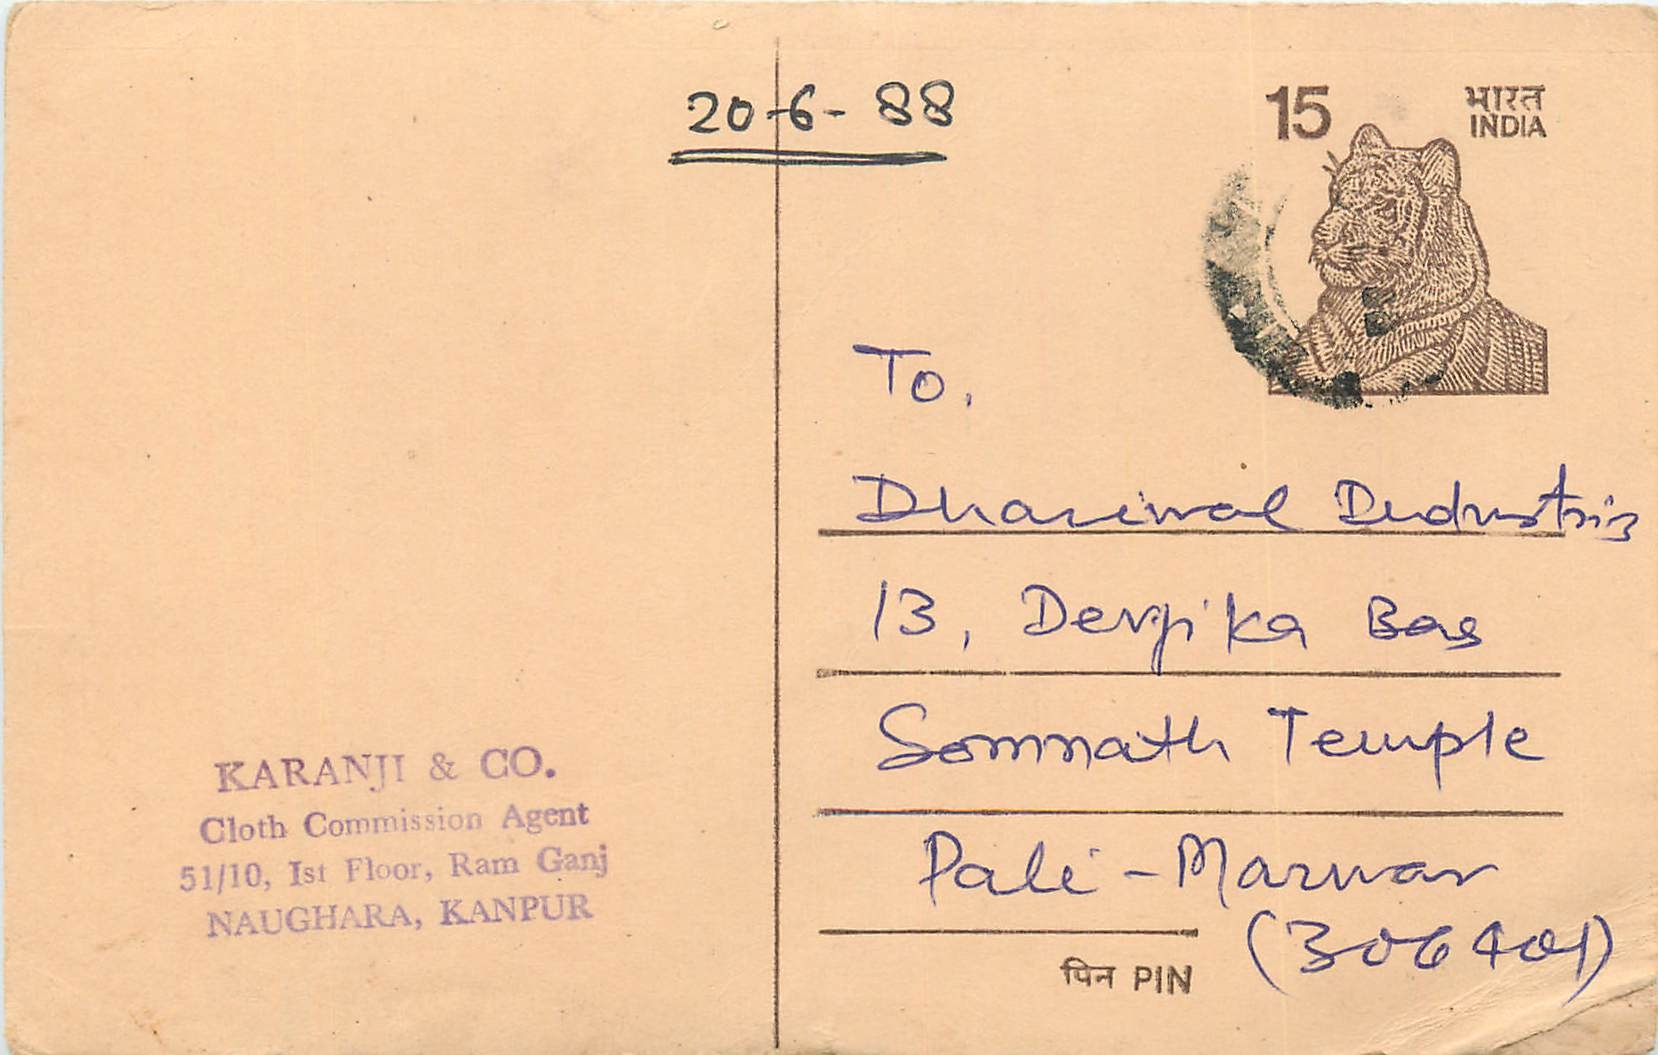 20-6-88
15
भारत
INDIA
To,
Dhariwal Industries
13, Devji ka Bas
Somnath Temple
Pali - Marwar
(306401)
पिन PIN
KARANJI & CO.
Cloth Commission Agent
51/10, Ist Floor, Ram Ganj
NAUGHARA, KANPUR